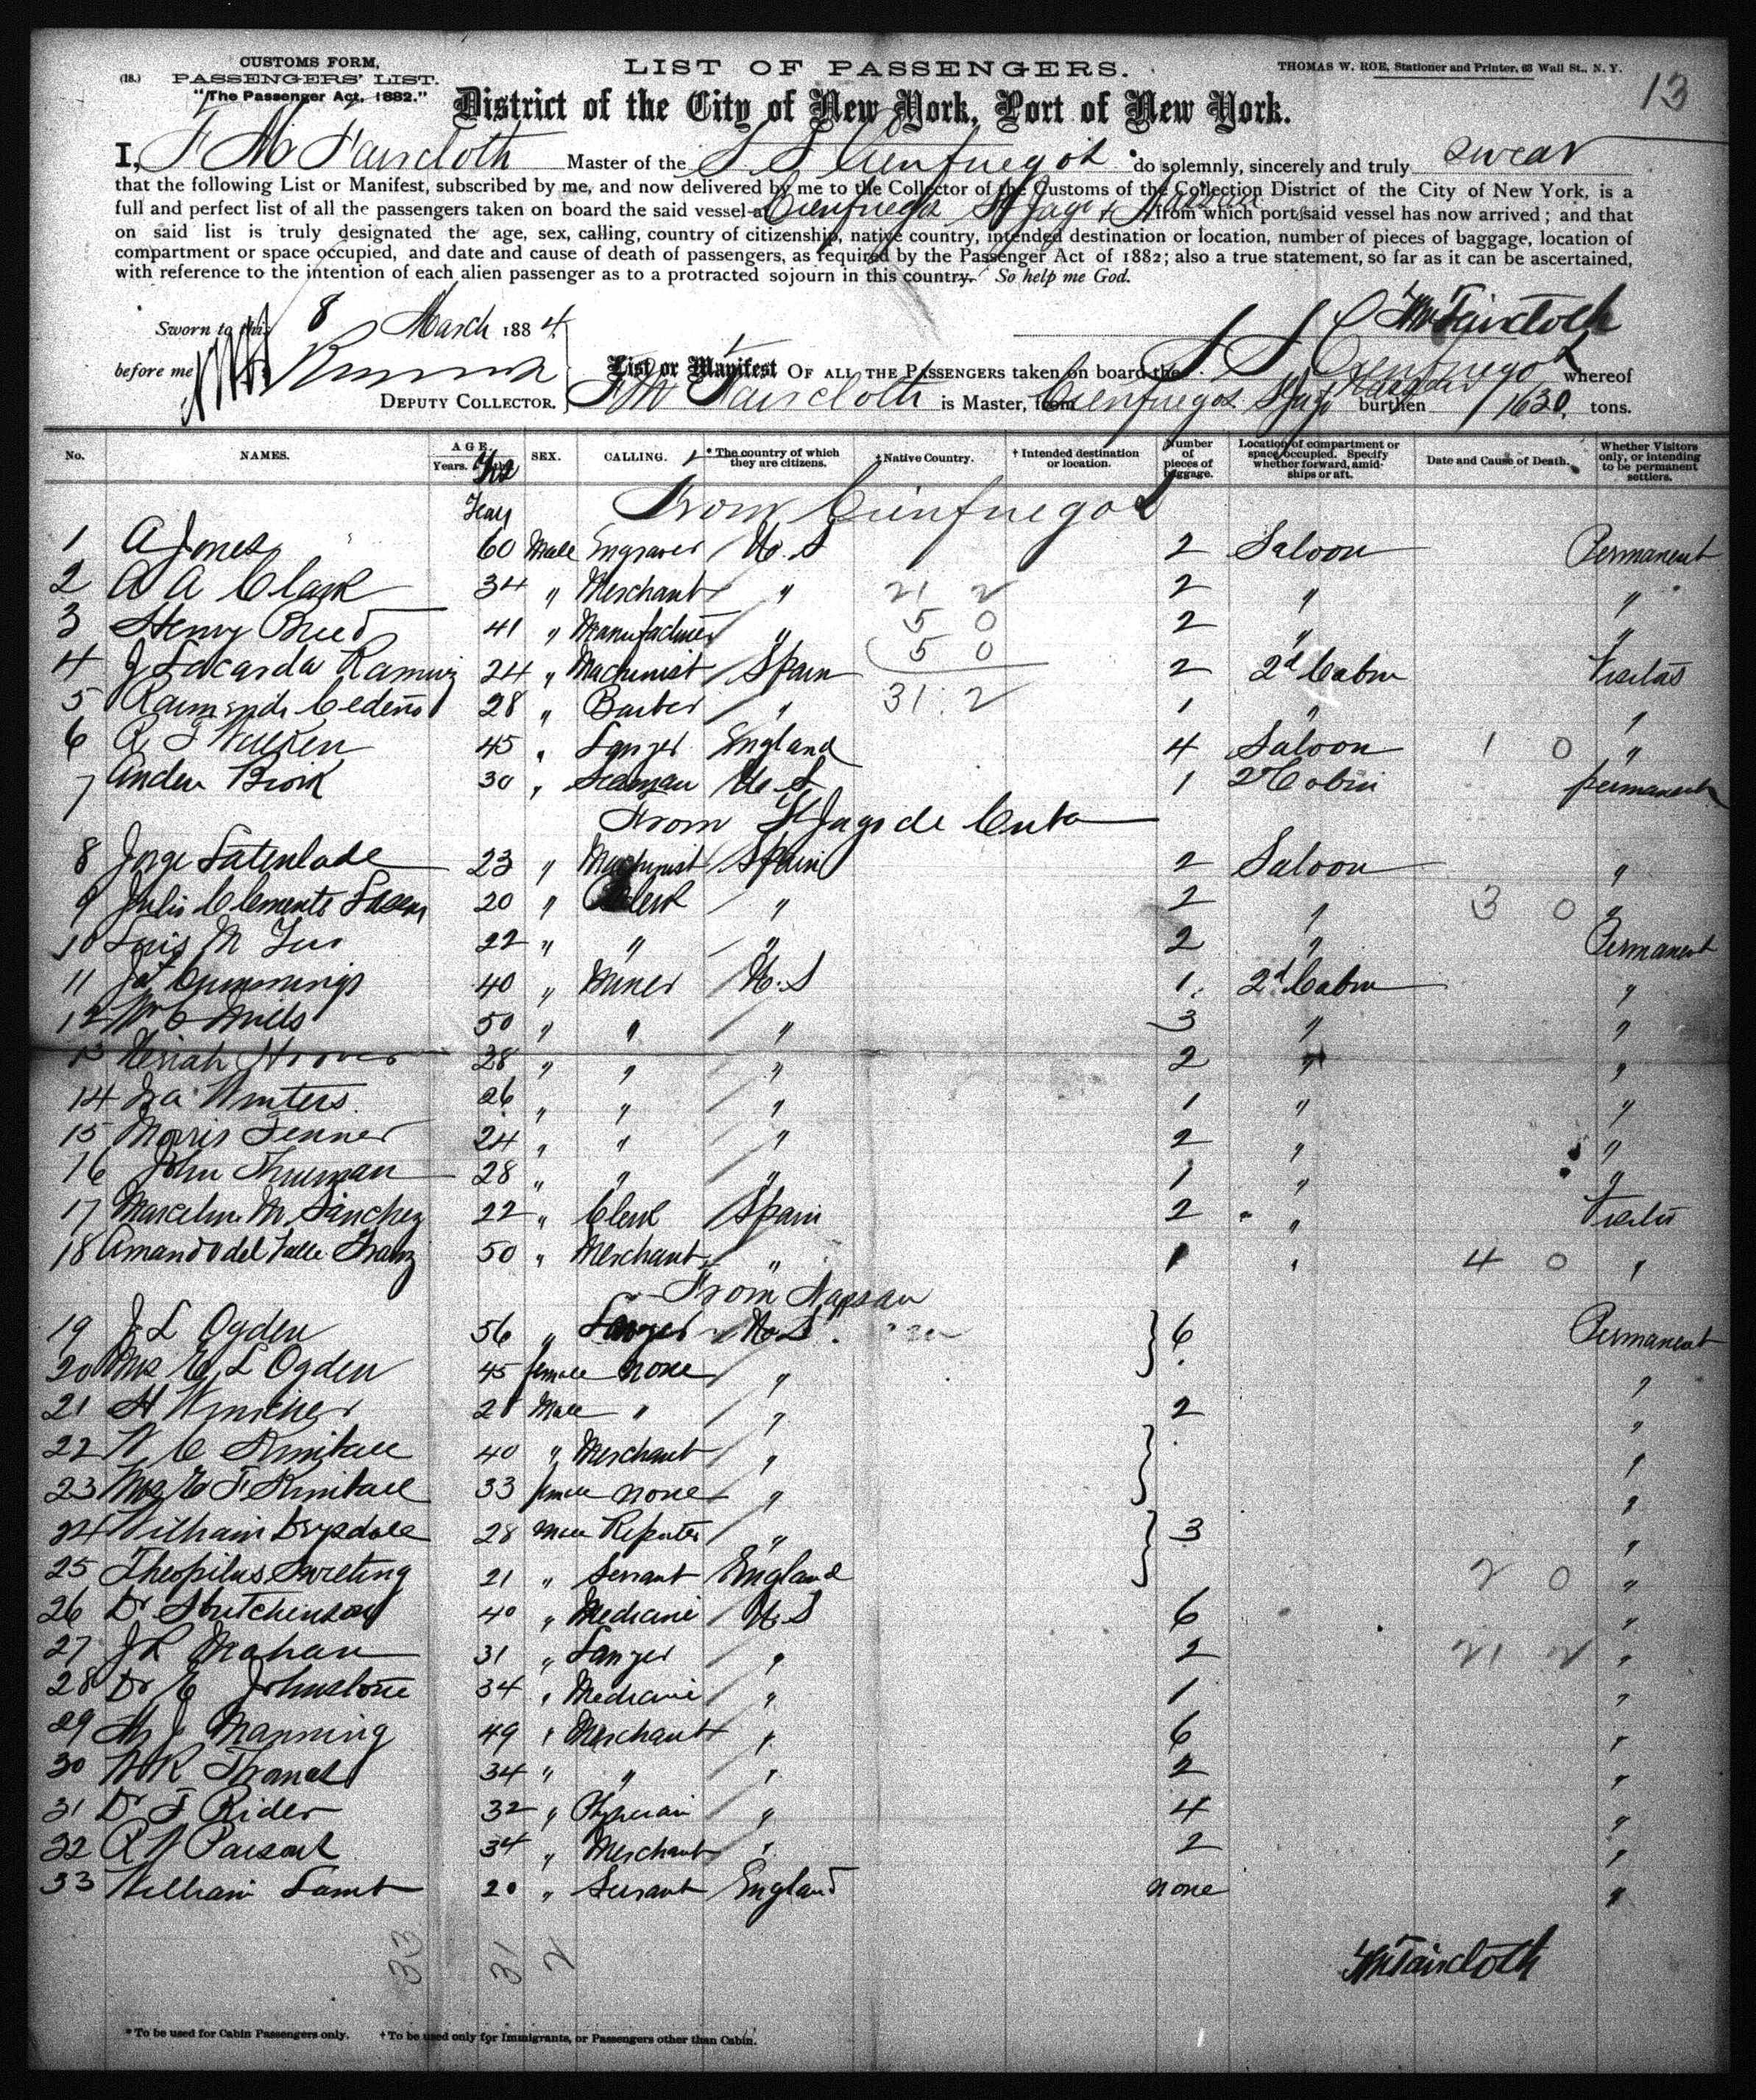 CUSTOMS FORM,
(18.) PASSENGERS' LIST.
"The Passenger Act, 1882."
LIST OF PASSENGERS.
THOMAS W. ROE, Stationer and Printer, 63 Wall St., N. Y.
13
District of the City of New York, Port of New York.
I, F M Faircloth Master of the S S Cienfuegos do solemnly, sincerely and truly swear
that the following List or Manifest, subscribed by me, and now delivered by me to the Collector of the Customs of the Collection District of the City of New York, is a
full and perfect list of all the passengers taken on board the said vessel at Cienfuegos St Jago & Nassau from which port said vessel has now arrived; and that
on said list is truly designated the age, sex, calling, country of citizenship, native country, intended destination or location, number of pieces of baggage, location of
compartment or space occupied, and date and cause of death of passengers, as required by the Passenger Act of 1882; also a true statement, so far as it can be ascertained,
with reference to the intention of each alien passenger as to a protracted sojourn in this country. So help me God.
FM Faircloth
Sworn to this 8 March 1884
before me
DEPUTY COLLECTOR.
List or Manifest OF ALL THE PASSENGERS taken on board the S S Cienfuegos whereof
F M Faircloth is Master, from Cienfuegos St Jago Nassau burthen 1630 tons.
No. NAMES. AGE. Years. SEX. CALLING. * The country of which they are citizens. † Native Country. † Intended destination or location. Number of pieces of baggage. Location of compartment or space occupied. Specify whether forward, amidships or aft. Date and Cause of Death. Whether Visitors only, or intending to be permanent settlers.
From Cienfuegos
1 A Jones 60 Male Engraver U.S 2 Saloon Permanent
2 A A Clark 34 " Merchant " 21 2 2 " "
3 Henry Breed 41 " Manufacturer " 5 0 2 " "
4 J Lacarda Ramirez 24 " Machinist Spain 5 0 2 2d Cabin Visitas
5 Cedeno 28 " Barber " 31 2 1 " "
6 45 " Lawyer England 4 Saloon 1 0 "
7 30 " Seaman U.S 1 2d Cabin permanent
From St Jago de Cuba
8 Jorge 23 " Machinist Spain 2 Saloon "
9 Julio Clemente 20 " Clerk " 2 " 3 0 "
10 Luis M 22 " " " 2 " Permanent
11 Jas Cummings 40 " Miner U.S 1 2d Cabin "
12 Wm C Mills 50 " " " 3 " "
13 Uriah Hoover 28 " " " 2 " "
14 Ira Winters 26 " " " 1 " "
15 Morris Fenner 24 " " " 2 " "
16 John Thruman 28 " " " 1 " "
17 Marcelino M Sanchez 22 " Clerk Spain 2 " Visitor
18 Amando del Valle 50 " Merchant " 1 " 4 0 "
From Nassau
19 J L Ogden 56 " Lawyer U.S } 6 Permanent
20 Mrs E L Ogden 45 female none " "
21 H 28 Male " " 2 "
22 W C Kimball 40 " Merchant " } "
23 Mrs E F Kimball 33 female none " "
24 William Drysdale 28 male Reporter " } 3 "
25 Theopilus Sweeting 21 " Servant England 2 0 "
26 Dr Hutchinson 40 " Medicine U.S 6 "
27 J R Mahan 31 " Lawyer " 2 21 2 "
28 Dr E Johnstone 34 " Medicine " 1 "
29 J Manning 49 " Merchant " 6 "
30 W R 34 " " " 2 "
31 Dr F Rider 32 " Physician " 4 "
32 R W Parsons 34 " Merchant " 2 "
33 William Lamb 20 " Servant England none "
33 31 2
FM Faircloth
* To be used for Cabin Passengers only. † To be used only for Immigrants, or Passengers other than Cabin.